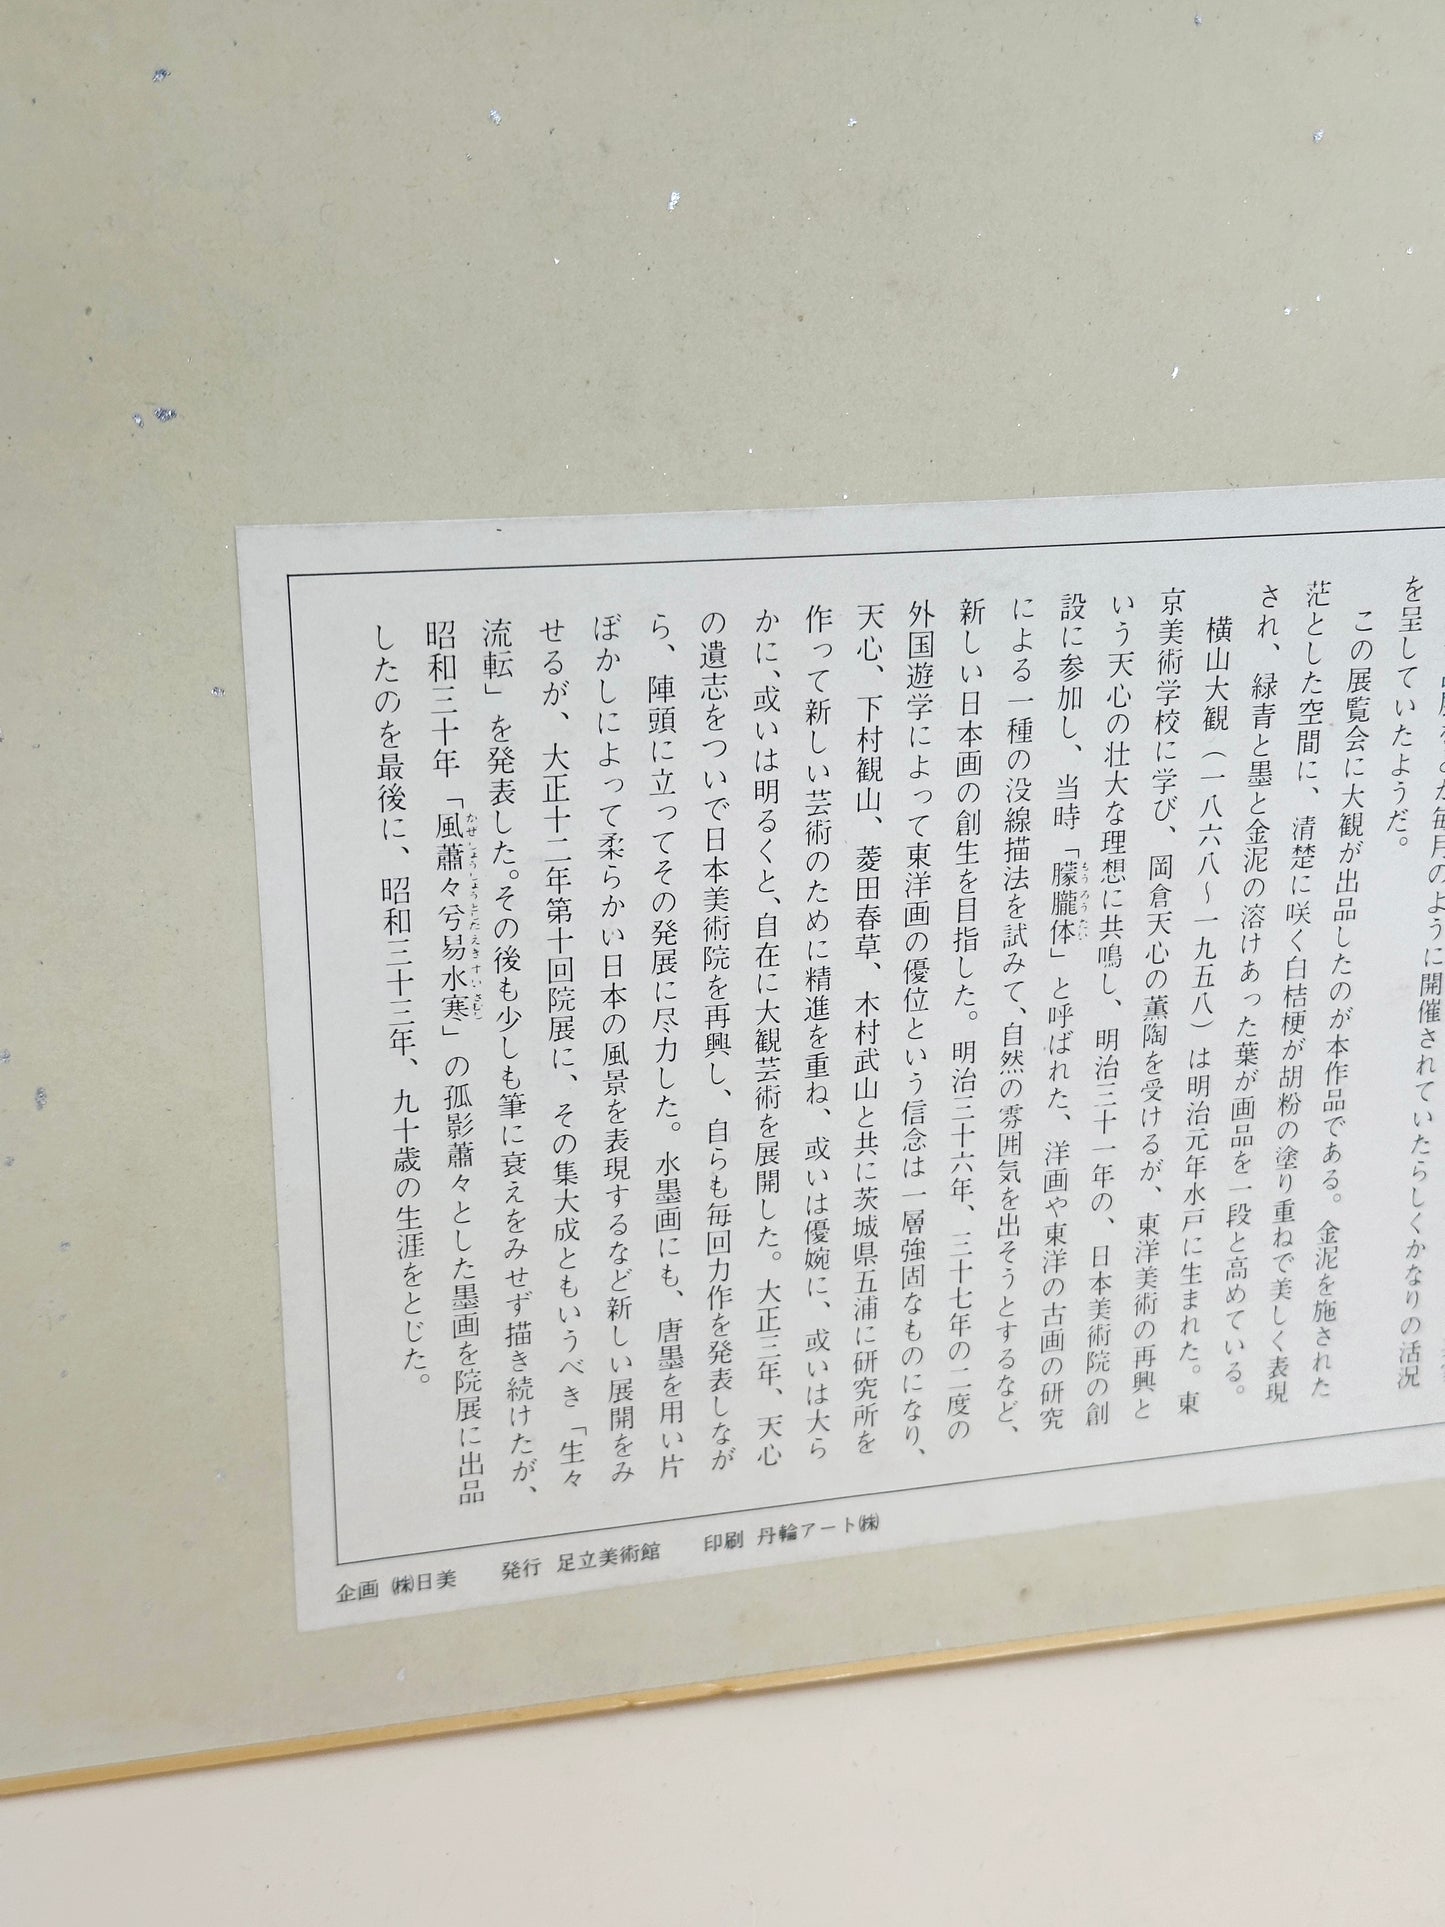 毎月のように開催されていたらしくかなりの活況
を呈していたようだ。
この展覧会に大観が出品したのが本作品である。金泥を施された
茫とした空間に、清楚に咲く白桔梗が胡粉の塗り重ねで美しく表現
され、緑青と墨と金泥の溶けあった葉が画品を一段と高めている。
横山大観（一八六八〜一九五八）は明治元年水戸に生まれた。東
京美術学校に学び、岡倉天心の薫陶を受けるが、東洋美術の再興と
いう天心の壮大な理想に共鳴し、明治三十一年の、日本美術院の創
設に参加し、当時「朦朧体」と呼ばれた、洋画や東洋の古画の研究
もうろうたい
による一種の没線描法を試みて、自然の雰囲気を出そうとするなど、
新しい日本画の創生を目指した。明治三十六年、三十七年の二度の
外国遊学によって東洋画の優位という信念は一層強固なものになり、
天心、下村観山、菱田春草、木村武山と共に茨城県五浦に研究所を
作って新しい芸術のために精進を重ね、或いは優婉に、或いは大ら
かに、或いは明るくと、自在に大観芸術を展開した。大正三年、天心
の遺志をついで日本美術院を再興し、自らも毎回力作を発表しなが
ら、陣頭に立ってその発展に尽力した。水墨画にも、唐墨を用い片
ぼかしによって柔らかい日本の風景を表現するなど新しい展開をみ
せるが、大正十二年第十回院展に、その集大成ともいうべき「生々
流転」を発表した。その後も少しも筆に衰えをみせず描き続けたが、
昭和三十年「風蕭々兮易水寒」の孤影蕭々とした墨画を院展に出品
かぜしょうしょうとしてえきすいさむし
したのを最後に、昭和三十三年、九十歳の生涯をとじた。
企画 ㈱日美 発行 足立美術館 印刷 丹輪アート㈱